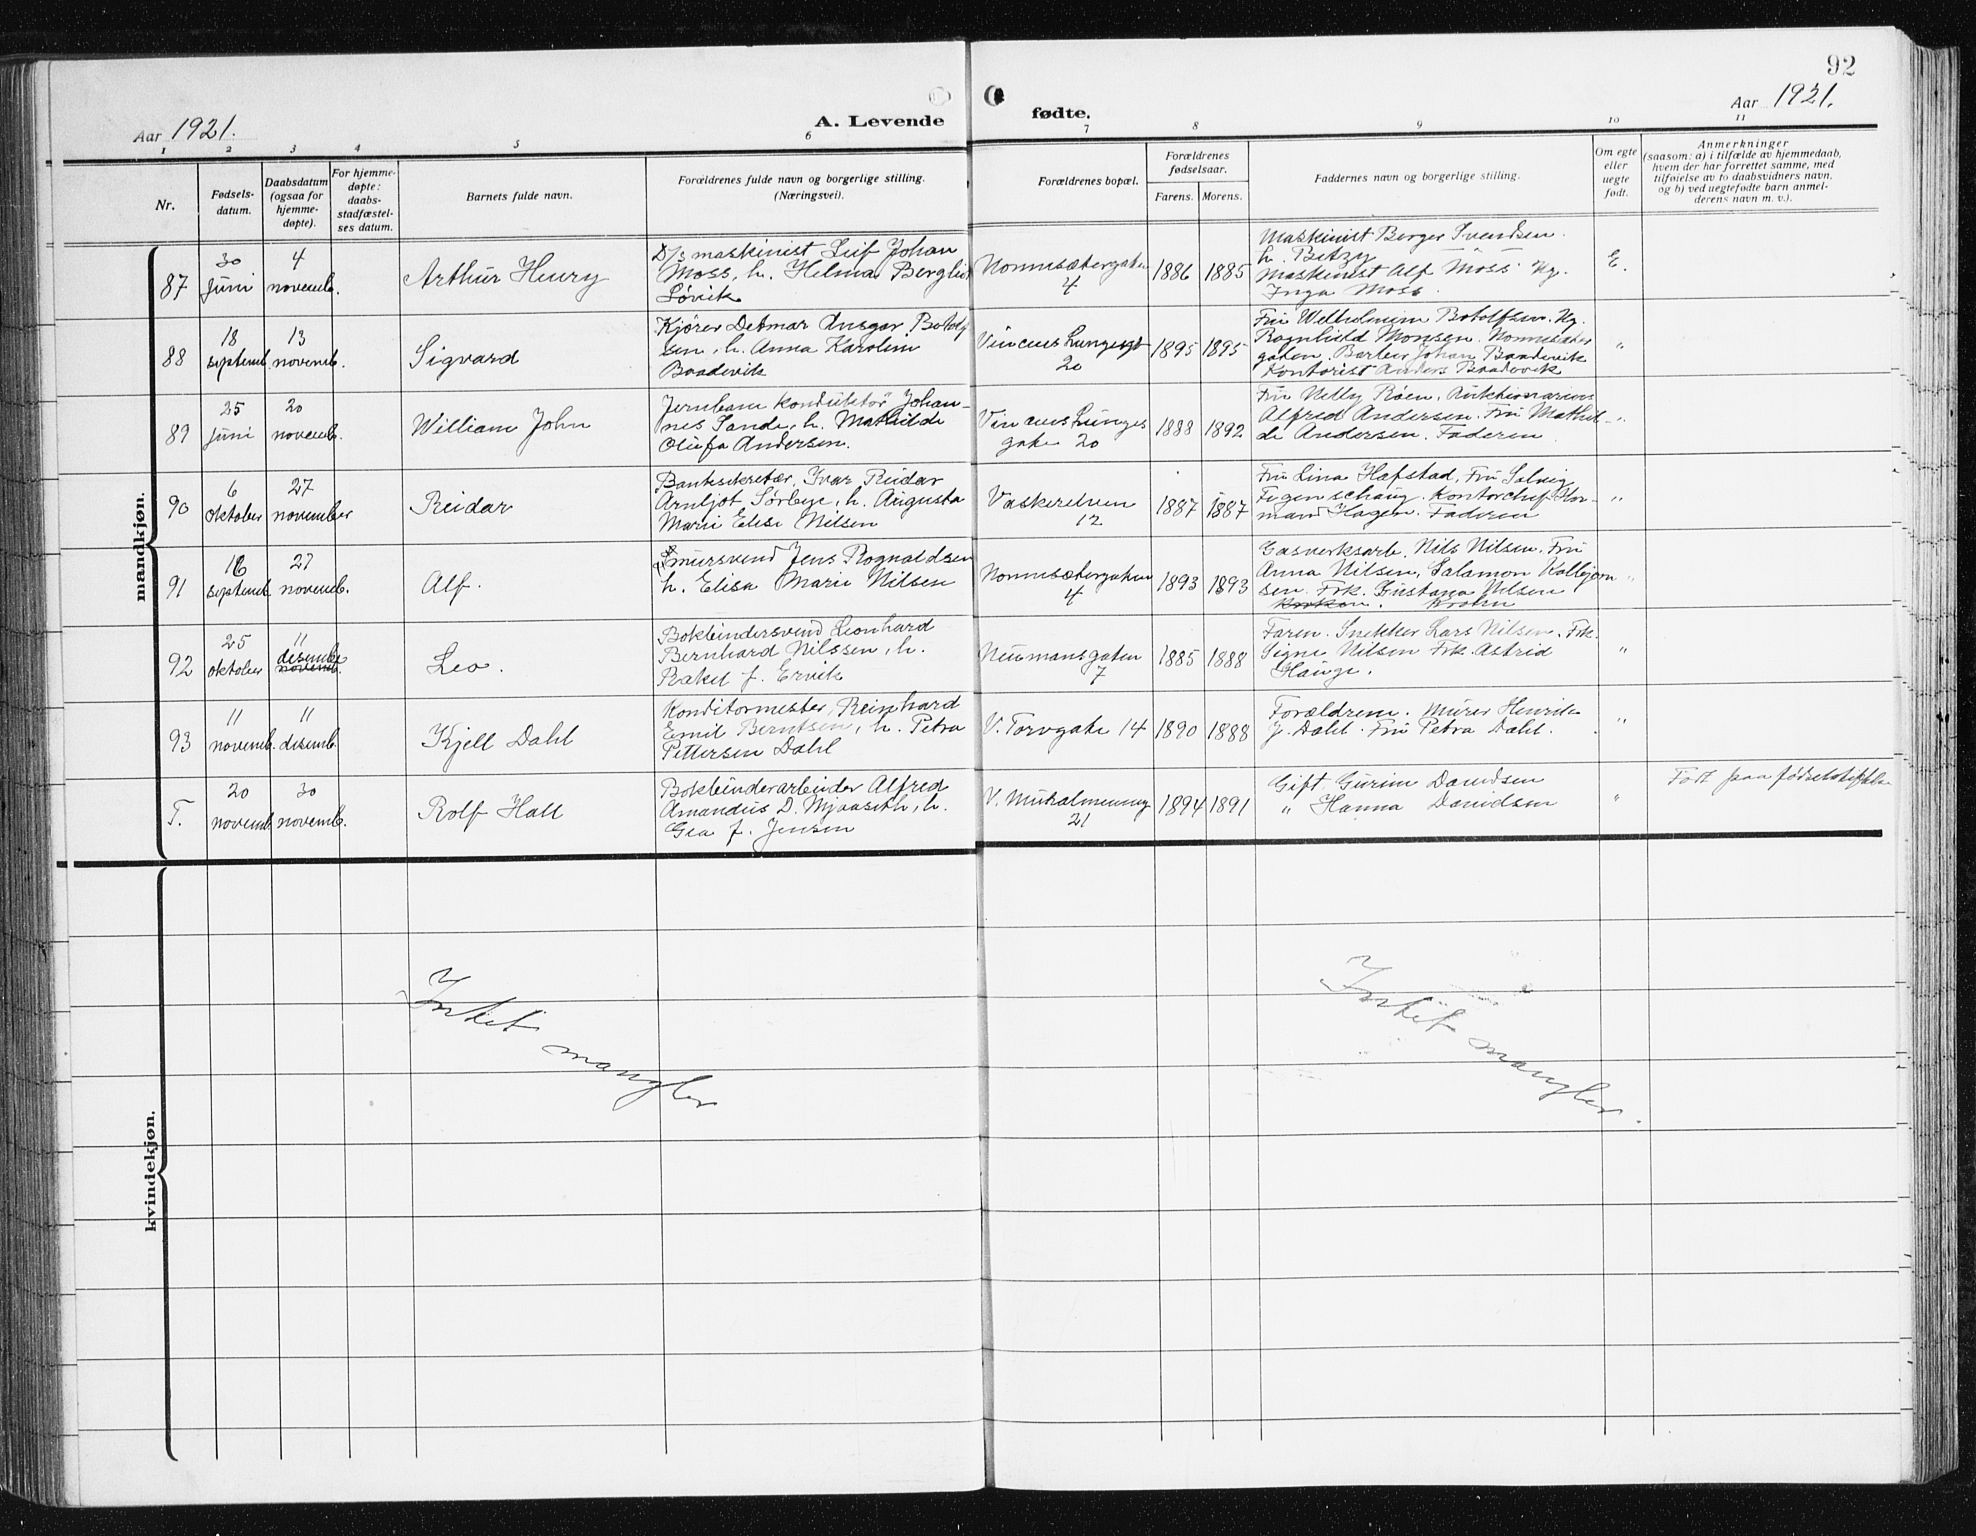 92
Aar 1921.
A. Levende
fødte.
Aar 1921.
1 2 3 4 5 6 7 8 9 10 11
Nr.
Fødsels-
datum.
Daabsdatum
(ogsaa for
hjemme-
døpte).
For hjemme-
døpte:
daabs-
stadfæstel-
ses datum.
Barnets fulde navn.
Forældrenes fulde navn og borgerlige stilling.
(Næringsvei).
Forældrenes bopæl.
Forældrenes
fødselsaar.
Farens. Morens.
Faddernes navn og borgerlige stilling.
Om egte
eller
uegte
født.
Anmerkninger
(saasom: a) i tilfælde av hjemmedaab,
hvem der har forrettet samme, med
tilføielse av to daabsvidners navn,
og b) ved uegtefødte barn anmel-
derens navn m. v.).
mandkjøn.
87
30
juni
4
novemb.
Arthur Henry
D/s maskinist Leif Johan
Moss, h. Helma Bergliot
Løvik
Nonnesætergaten
4
1886 1885
Maskinist Berger Svendsen.
h. Betzy
Maskinist Alf Moss. Hg.
Inga Moss.
E.
88
18
septemb.
13
novemb.
Sigvard
Kjører Detmar Ansgar Botolf
sen, h. Anna Karoline
Baadevik
Vincens Lungesgt
20
1895 1895
Fru Wilhelmine Botolfsen. Hg.
Ragnhild Monsen. Nonnesæter
gaten. Barber Johan Baadevik
Kontorist Anders Baadevik
"
89
25
juni
20
novemb.
William John
Jernbane konduktør Johan-
nes Sande, h. Mathilde
Olufa Andersen.
Vincens Lunges
gate 20
1888 1892
Fru Nelly Røen,
Alfred Andersen. Fru Mathil-
de Andersen. Faderen
"
90
6
oktober
27
november
Reidar
Banksekretær, Ivar Reidar
Arnljot Sørbye, h. Augusta
Marie Elise Nilsen
Vaskerelven
12
1887 1887
Fru Lina Hafstad, Fru Solveig
Figenschaug. Kontorchef Nor-
mann Hagen. Faderen
"
91
16
septemb.
27
novemb.
Alf.
mursvend Jens Rognaldsen
h. Elisa Marie Nilsen
Nonnesætergaten
4
1893 1893
Gasverksarb. Nils Nilsen. Fru
Anna Nilsen, Salamon Kallejorn
sen. Frk. Gustava Nilsen
"
92
25
oktober
11
desembe
novemb.
Leo.
Bokbindersvend Leonhard
Bernhard Nilssen, h.
Rakel f. Ervik
Neumansgaten
7
1885 1888
Faren. Snekker Lars Nilsen. Frk.
Signe Nilsen Frk. Astrid
Hauge.
"
93
11
novemb.
11
desemb.
Kjell Dahl
Konditormester, Reinhard
Emil Berntsen, h. Petra
Pettersen Dahl
V. Torvgate 14
1890 1888
Forældrene. Murer Henrik
J. Dahl. Fru Petra Dahl.
"
T.
20
novemb.
30
novemb.
Rolf Hall
Bokbinderarbeider Alfred
Amandus D. Mjaaseth, h.
Gea f. Jensen
V. Muralmenning
21
1894 1891
Gift. Gurine Davidsen
" Hanna Davidsen
"
Født paa fødselsstiftelse
kvindekjøn.
Intet mangler
Intet mangler.